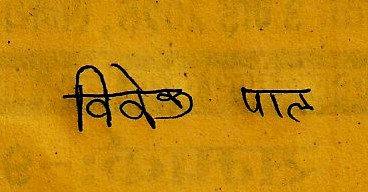 विवेक पाल